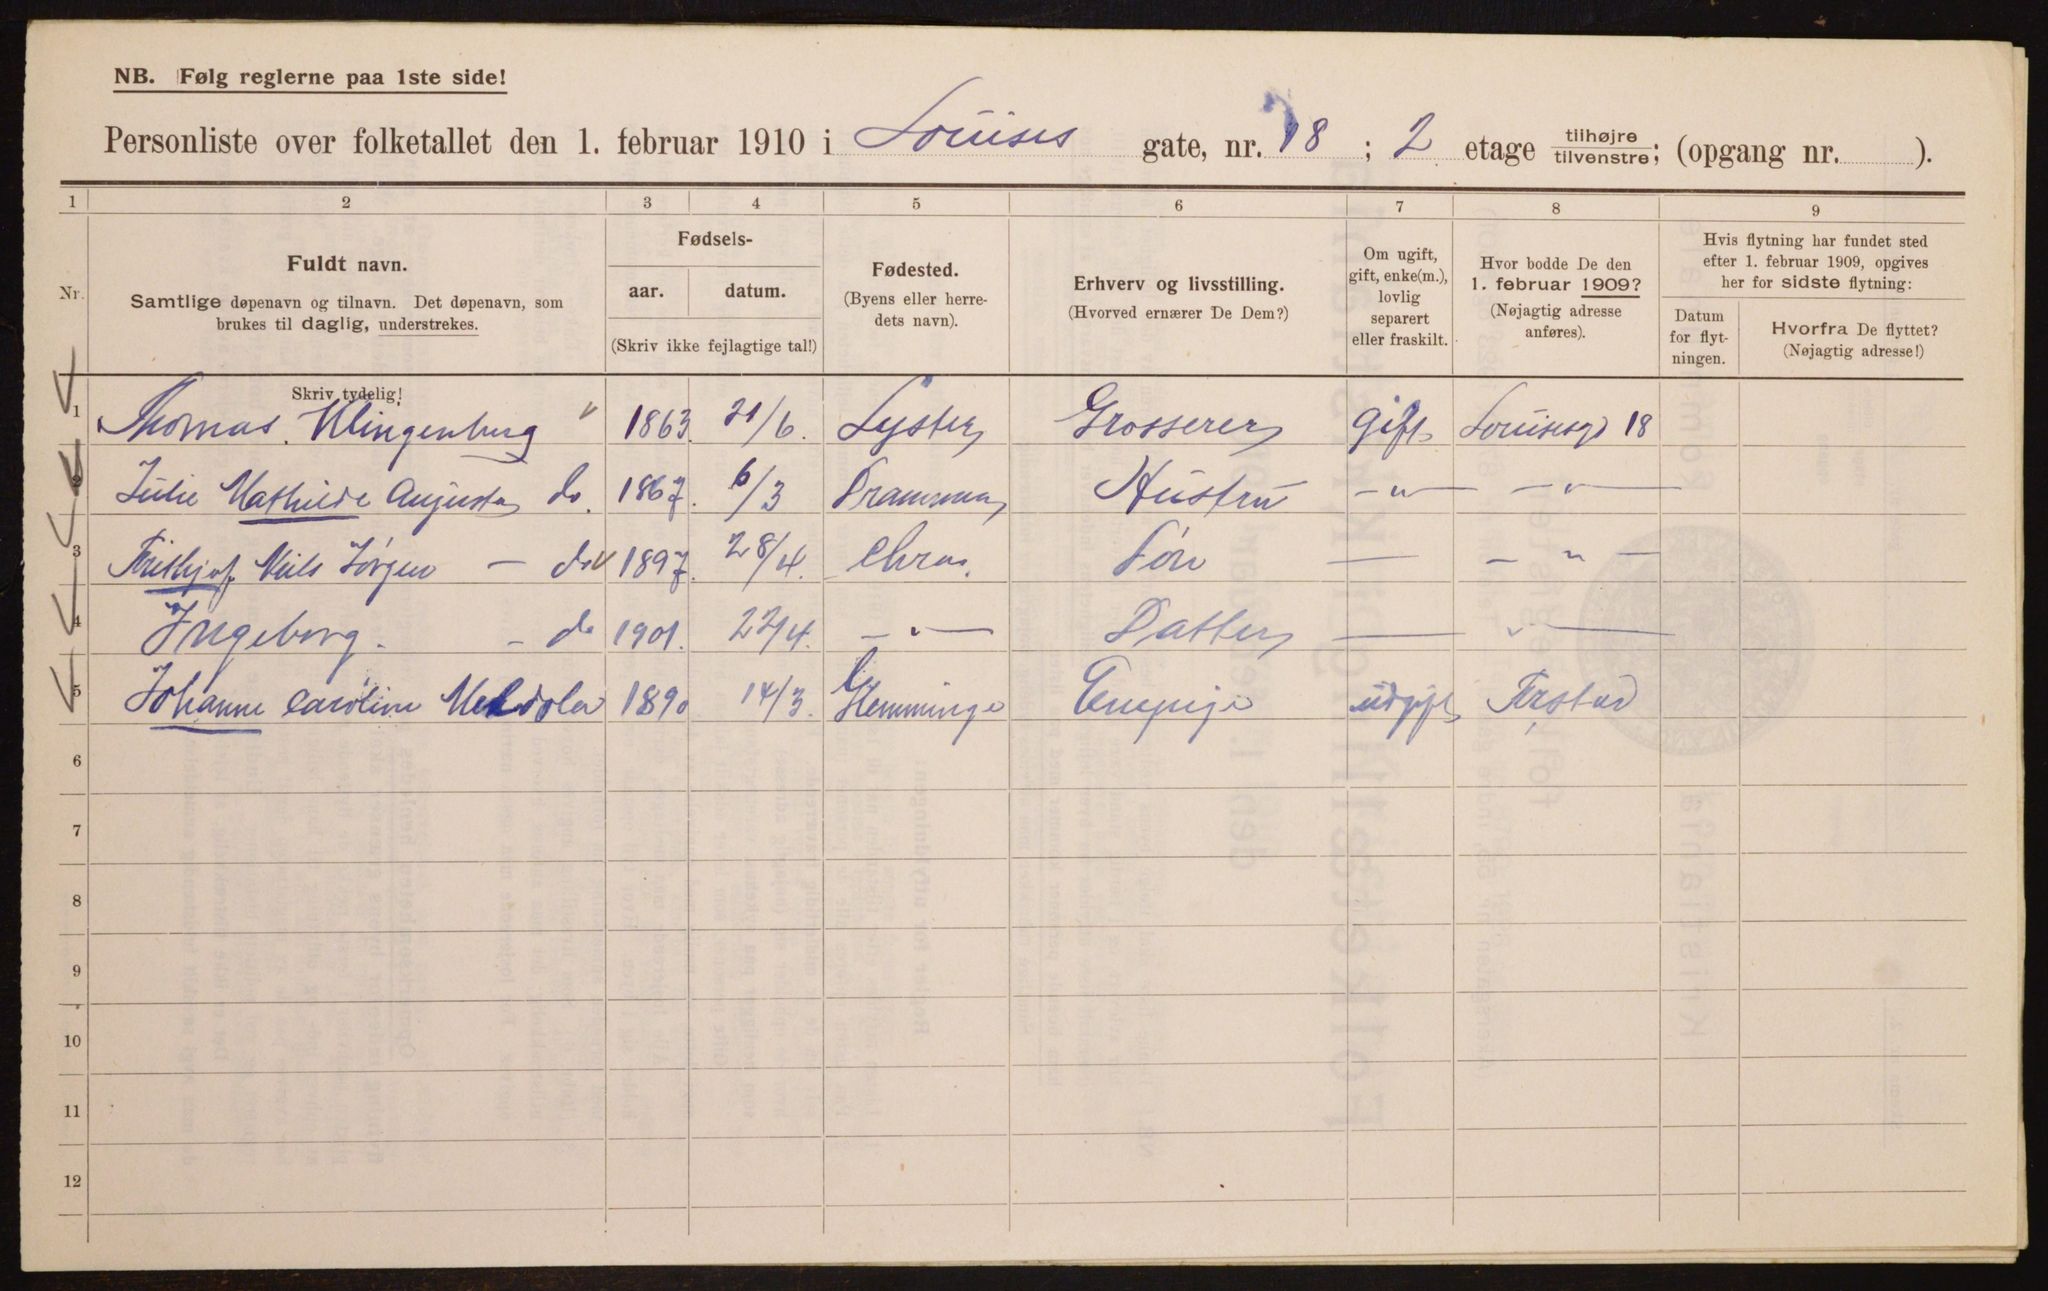 NB. Følg reglerne paa 1ste side!
Personliste over folketallet den 1. februar 1910 i Louises gate, nr. 18 ; 2 etage tilhøjre / tilvenstre; (opgang nr. ).
1 2 3 4 5 6 7 8 9
Nr.
Fuldt navn.
Samtlige døpenavn og tilnavn. Det døpenavn, som
brukes til daglig, understrekes.
Skriv tydelig!
Fødsels-
aar. datum.
(Skriv ikke fejlagtige tal!)
Fødested.
(Byens eller herre-
dets navn).
Erhverv og livsstilling.
(Hvorved ernærer De Dem?)
Om ugift,
gift, enke(m.),
lovlig
separert
eller fraskilt.
Hvor bodde De den
1. februar 1909?
(Nøjagtig adresse
anføres).
Hvis flytning har fundet sted
efter 1. februar 1909, opgives
her for sidste flytning:
Datum
for flyt-
ningen.
Hvorfra De flyttet?
(Nøjagtig adresse!)
1 Thomas Klingenberg 1863 21/6. Lyster Grosserer gift Louisesgd 18
2 Julie Mathilde Augusta do. 1867. 6/3 Drammen Hustru —„— —„—
3 Frithjof Niels Jørgen — do 1897. 28/4. Chra. Søn — — „ —
4 Ingeborg. — do 1901. 22/4. —„— Datter — „—
5 Johanne Caroline 1890 14/3. Hemminge Tjenepige Ørstad
6
7
8
9
10
11
12